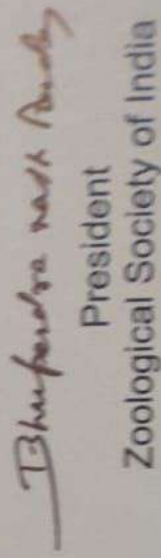 Bhupendra nath Pandey
President
Zoological Society of India